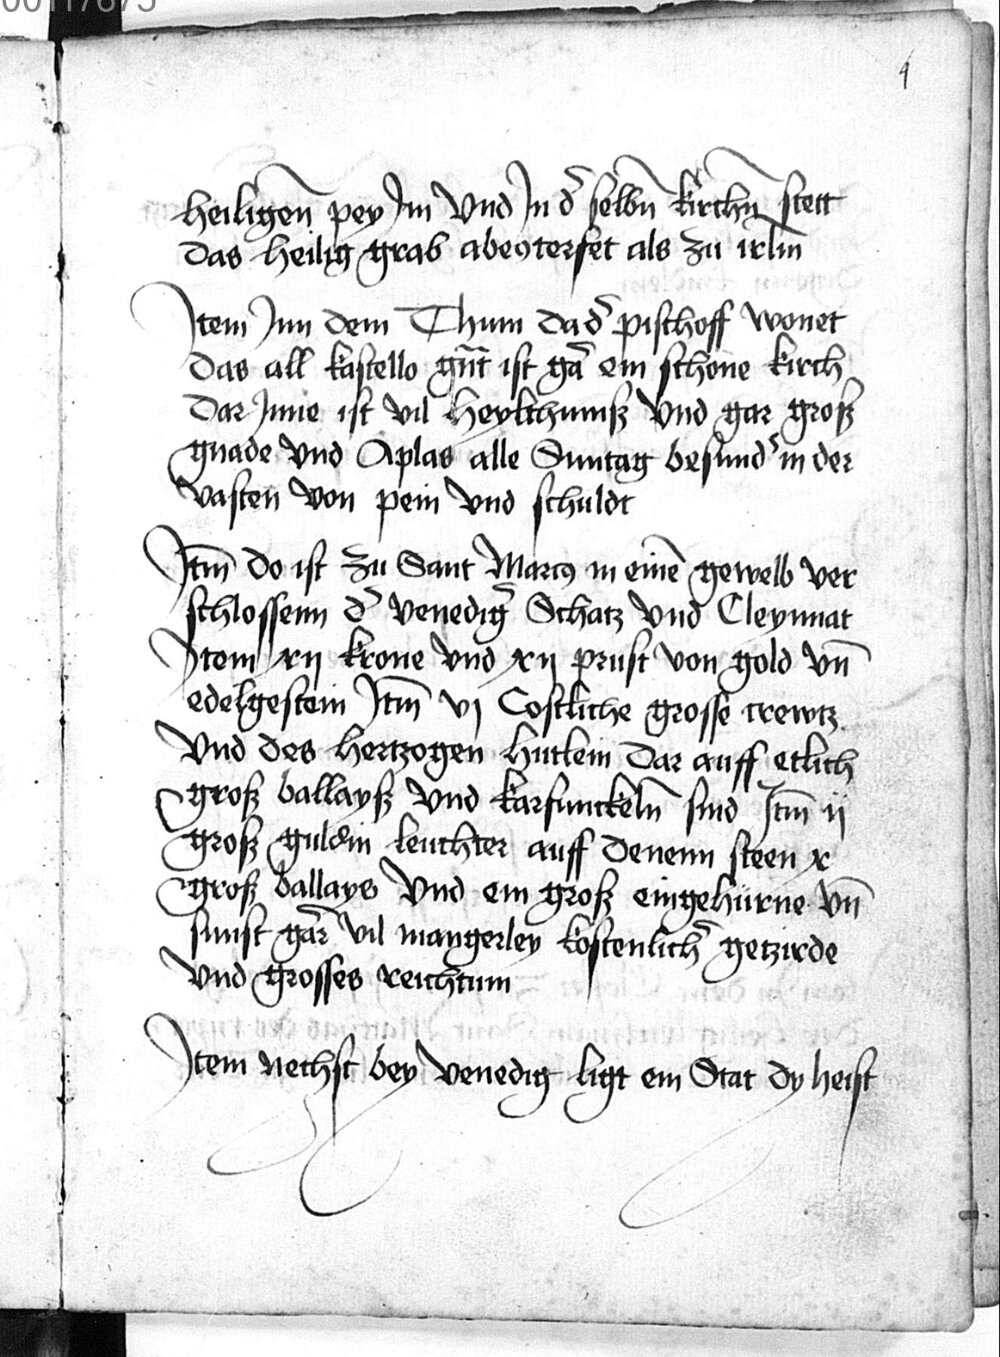 00117875
4
heiligen̄ pey Jm Vnd Jn d᷑ selbn̄ kirchn̄ stett
das heilig grab abenterfet als zu irlm̄
Jtem Jnn dem Thum da d᷑ pischoff wonet
das all kastello gnt̄ ist ga᷑ ein schone kirch
dar Jnne ist vil heylthumß Vnd gar groß
gnade Vnd Aplas alle Suntag besund᷑ in der
vasten von pein vnd schuldt
Jtm̄ do ist zu Sant Marcꝰ in eine᷑ gewelb ver
schlossenn d᷑ venedig᷑ Schatz vnd Cleynnat
Jtem xij krone vnd xij prust von gold vn̄
edelgestein Jtm̄ vj Costliche grosse crewtz
Vnd des hertzogen hutlein dar auff etlich
groß ballayß Vnd karfunckeln̄ sind Jtm̄ ij
groß guldin leuchter auff denenn steen x
groß ballays Vnd ein groß eingehurne vn̄
sunst gar vil mangerley kostenlich᷑ getzirde
Vnd grosses reichtum
Jtem nechst bey venedig ligt ein Stat dy heist